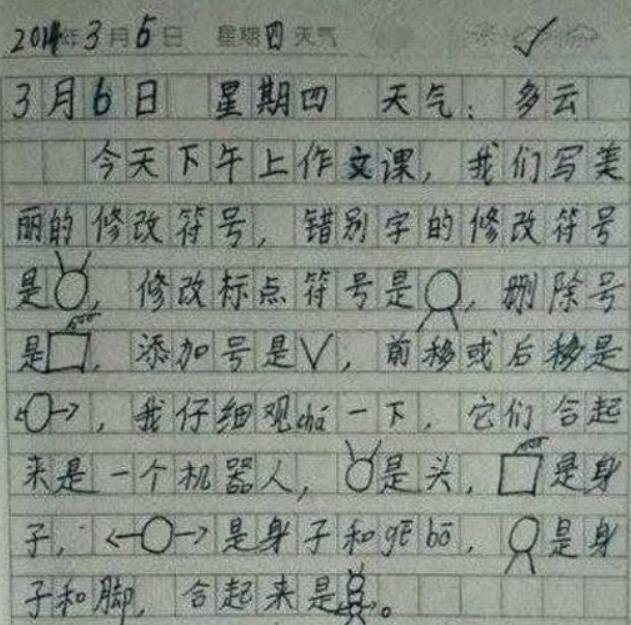 2014年3月6日 星期四 天气
3月6日 星期四 天气：多云
今天下午上作文课，我们写美
丽的修改符号，错别字的修改符号
是，修改标点符号是，删除号
是，添加号是V，前移或后移是
←○→，我仔细观chá一下，它们合起
来是一个机器人，是头，是身
子，←○→是身子和gē bō，是身
子和脚，合起来是。